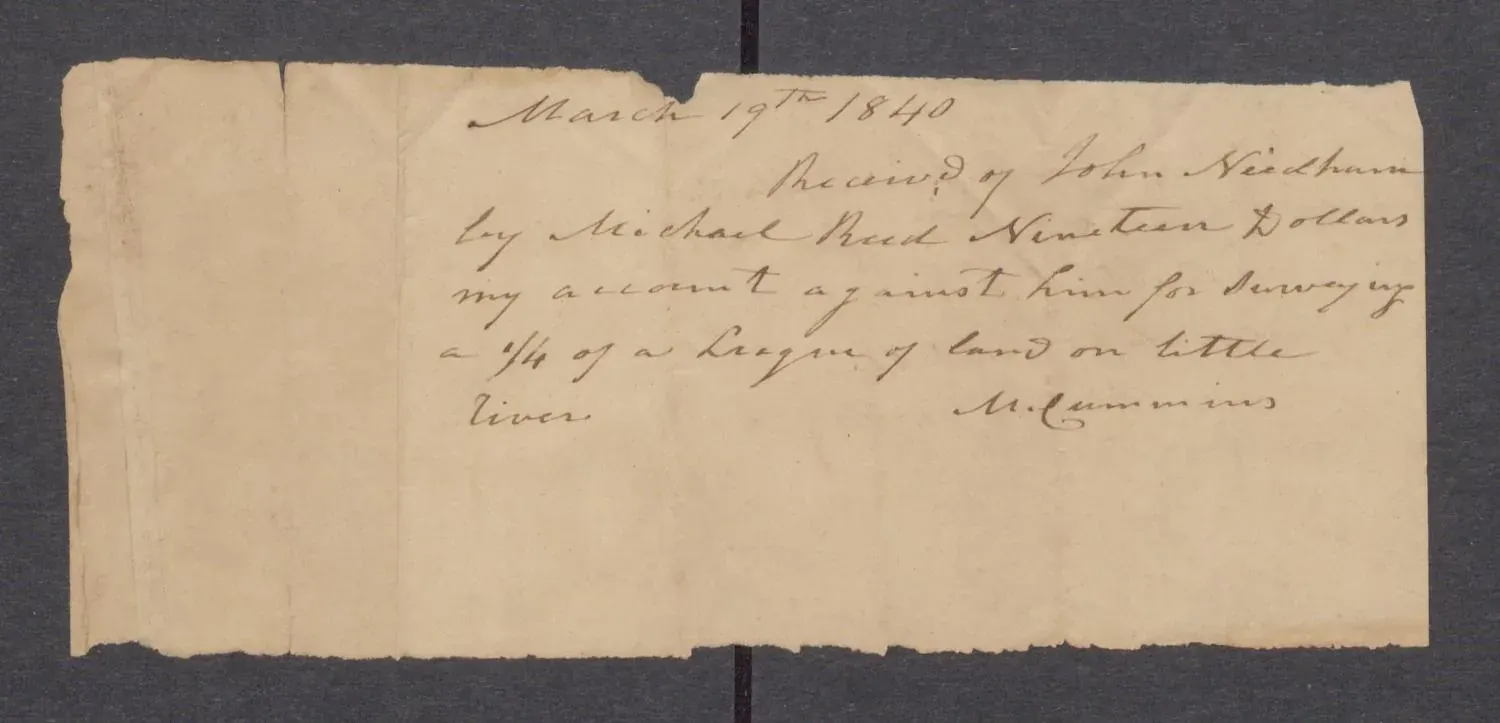 March 19th 1840
Receivd of John Needham
by Michael Reed Nineteen Dollars
my account against him for Surveying
a 1/4 of a League of land on little
river. M. Cummins